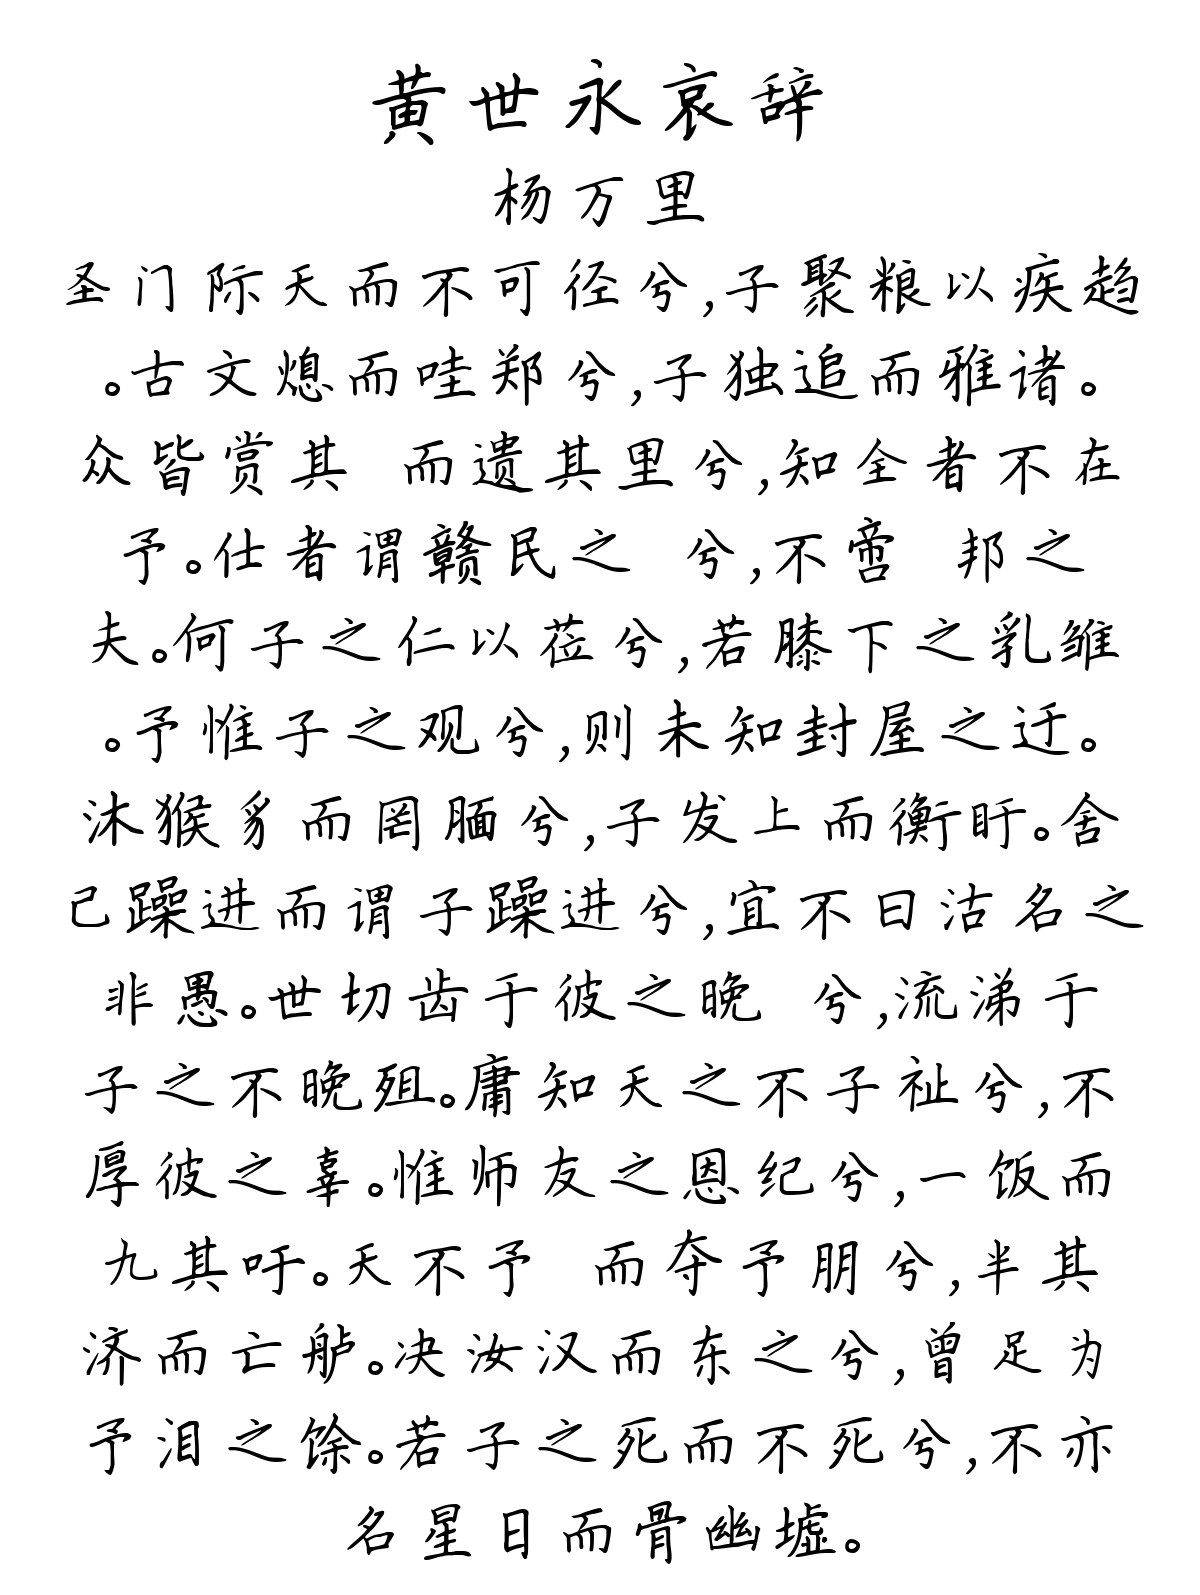 黄世永哀辞
杨万里
圣门际天而不可径兮,子聚粮以疾趋
。古文熄而哇郑兮,子独追而雅诸。
众皆赏其 而遗其里兮,知全者不在
予。仕者谓赣民之 兮,不啻 邦之
夫。何子之仁以莅兮,若膝下之乳雏
。予惟子之观兮,则未知封屋之迂。
沐猴豸而罔腼兮,子发上而衡盱。舍
己躁进而谓子躁进兮,宜不曰沽名之
非愚。世切齿于彼之晚 兮,流涕于
子之不晚殂。庸知天之不子祉兮,不
厚彼之辜。惟师友之恩纪兮,一饭而
九其吁。天不予 而夺予朋兮,半其
济而亡舻。决汝汉而东之兮,曾足为
予泪之馀。若子之死而不死兮,不亦
名星日而骨幽墟。